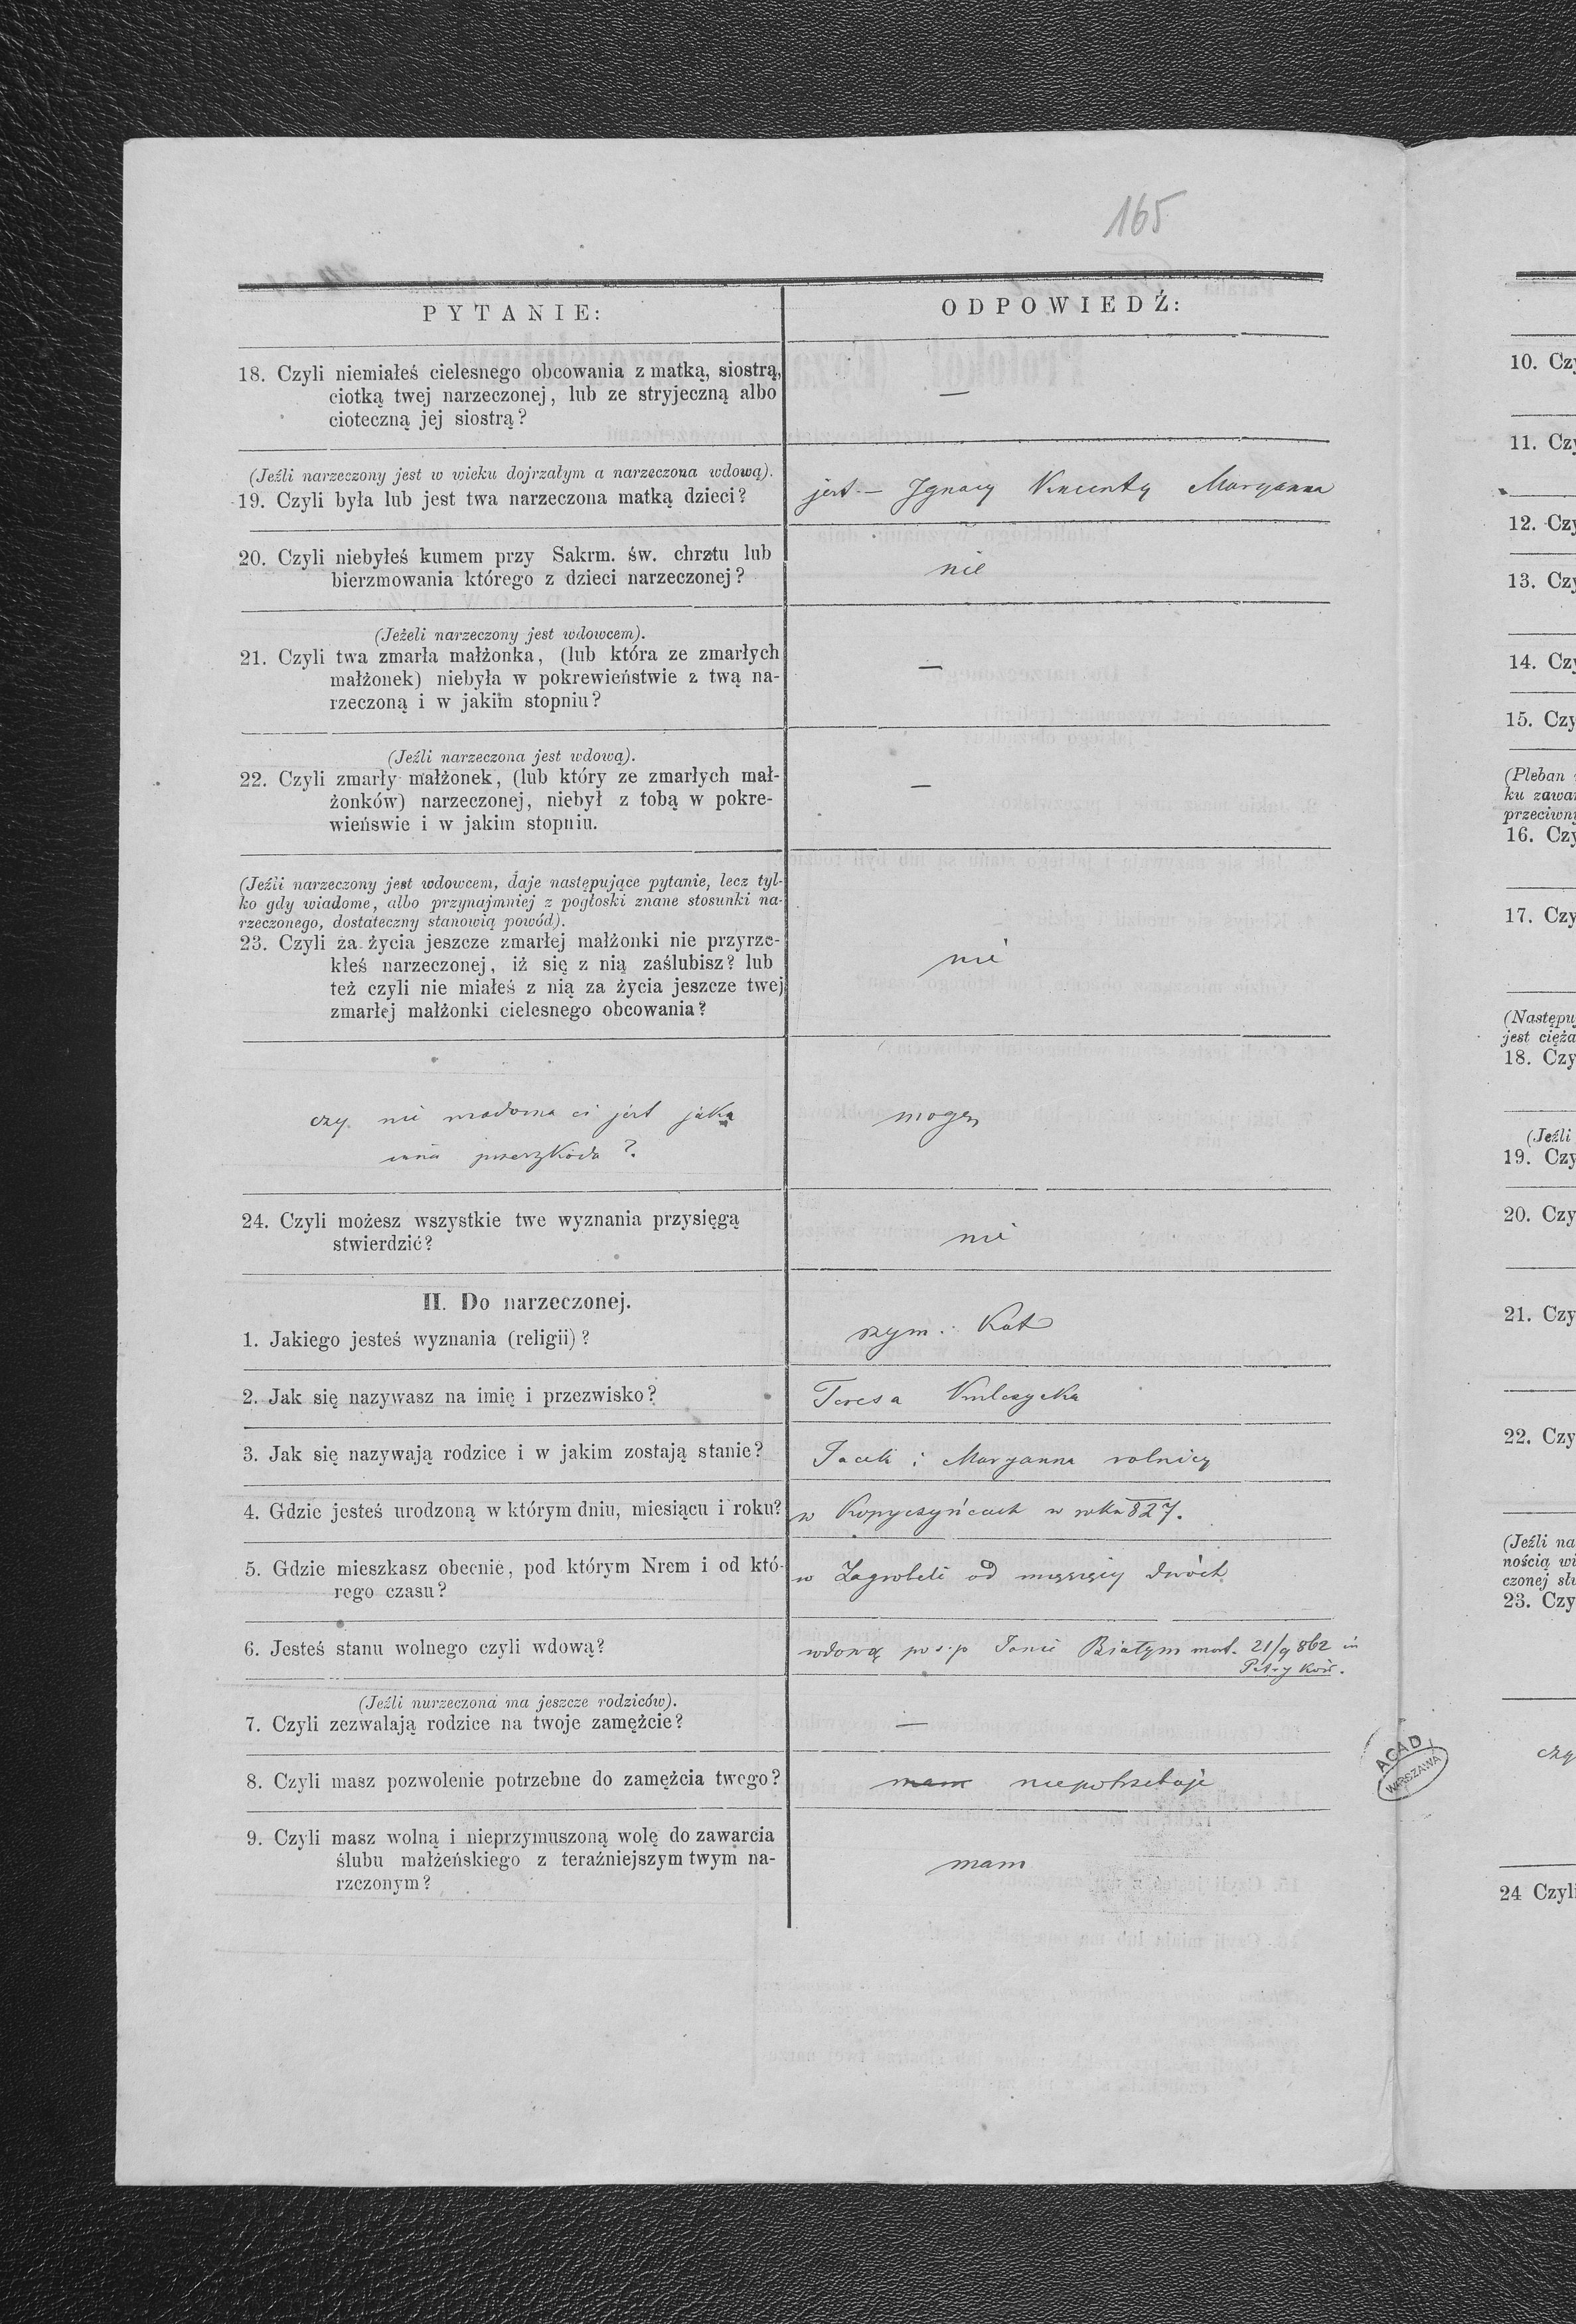 165
PYTANIE:
ODPOWIEDŹ:
18. Czyli niemiałeś cielesnego obcowania z matką, siostrą,
ciotką twej narzeczonej, lub ze stryjeczną albo
cioteczną jej siostrą?
—
(Jeźli narzeczony jest w wieku dojrzałym a narzeczona wdową).
19. Czyli była lub jest twa narzeczona matką dzieci?
jest — Ignacy Vincenty Maryanna
20. Czyli niebyłeś kumem przy Sakrm. św. chrztu lub
bierzmowania którego z dzieci narzeczonej?
nie
(Jeżeli narzeczony jest wdowcem).
21. Czyli twa zmarła małżonka, (lub która ze zmarłych
małżonek) niebyła w pokrewieństwie z twą na-
rzeczoną i w jakim stopniu?
—
(Jeźli narzeczona jest wdową).
22. Czyli zmarły małżonek, (lub który ze zmarłych mał-
żonków) narzeczonej, niebył z tobą w pokre-
wieńswie i w jakim stopniu.
—
(Jeźli narzeczony jest wdowcem, daje następujące pytanie, lecz tyl-
ko gdy wiadome, albo przynajmniej z pogłoski znane stosunki na-
rzeczonego, dostateczny stanowią powód).
23. Czyli za życia jeszcze zmarłej małżonki nie przyrze-
kłeś narzeczonej, iż się z nią zaślubisz? lub
też czyli nie miałeś z nią za życia jeszcze twej
zmarłej małżonki cielesnego obcowania?
nie
czy nie wiadoma ci jest jaka
inna przeszkoda?
mogę
24. Czyli możesz wszystkie twe wyznania przysięgą
stwierdzić?
nie
II. Do narzeczonej.
1. Jakiego jesteś wyznania (religii)?
rzym. Kat
2. Jak się nazywasz na imię i przezwisko?
Teresa Kulczycka
3. Jak się nazywają rodzice i w jakim zostają stanie?
Jacek i Maryanna rolnicy
4. Gdzie jesteś urodzoną w którym dniu, miesiącu i roku?
w Kopyczyńcach w roku 827.
5. Gdzie mieszkasz obecnie, pod którym Nrem i od któ-
rego czasu?
w Zagrobeli od miesięcy dwóch
6. Jesteś stanu wolnego czyli wdową?
wdową po s.p Janie Białym mort. 21/9 862 in
(Jeźli nurzeczona ma jeszcze rodziców).
7. Czyli zezwalają rodzice na twoje zamężcie?
—
8. Czyli masz pozwolenie potrzebne do zamężcia twego?
mam niepotrzebuje
9. Czyli masz wolną i nieprzymuszoną wolę do zawarcia
ślubu małżeńskiego z teraźniejszym twym na-
rzczonym?
mam
AGAD
WARSZAWA
10. Czy
11. Czy
12. Czy
13. Czy
14. Czy
15. Czy
(Pleban
ku zawar
przeciwn
16. Czy
17. Czy
(Następuj
jest cięża
18. Czy
(Jeźli
19. Czy
20. Czy
21. Czy
22. Czy
(Jeźli na
nością wi
czonej sł
23. Czy
czy
24 Czyli